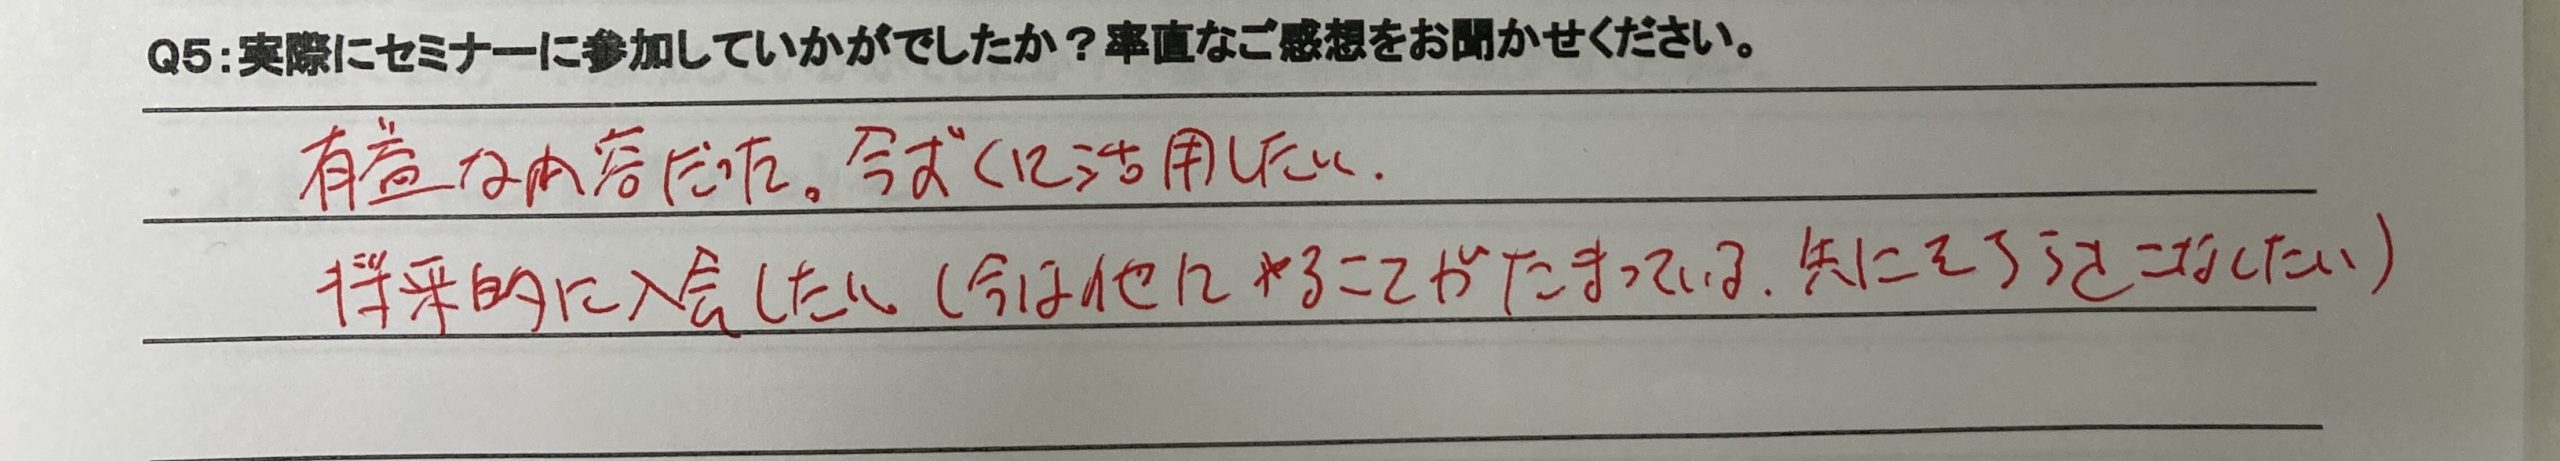 Q5:実際にセミナーに参加していかがでしたか？率直なご感想をお聞かせください。
有益な内容だった。今すぐに活用したい.
将来的に入会したい(今は他にやることがたまっている. 先にそちらをこなしたい)